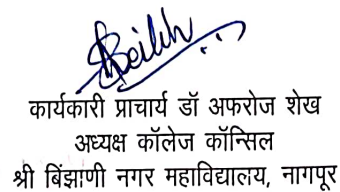 कार्यकारी प्राचार्य डॉ अफरोज शेख
अध्यक्ष कॉलेज कॉन्सिल
श्री बिंझाणी नगर महाविद्यालय, नागपूर